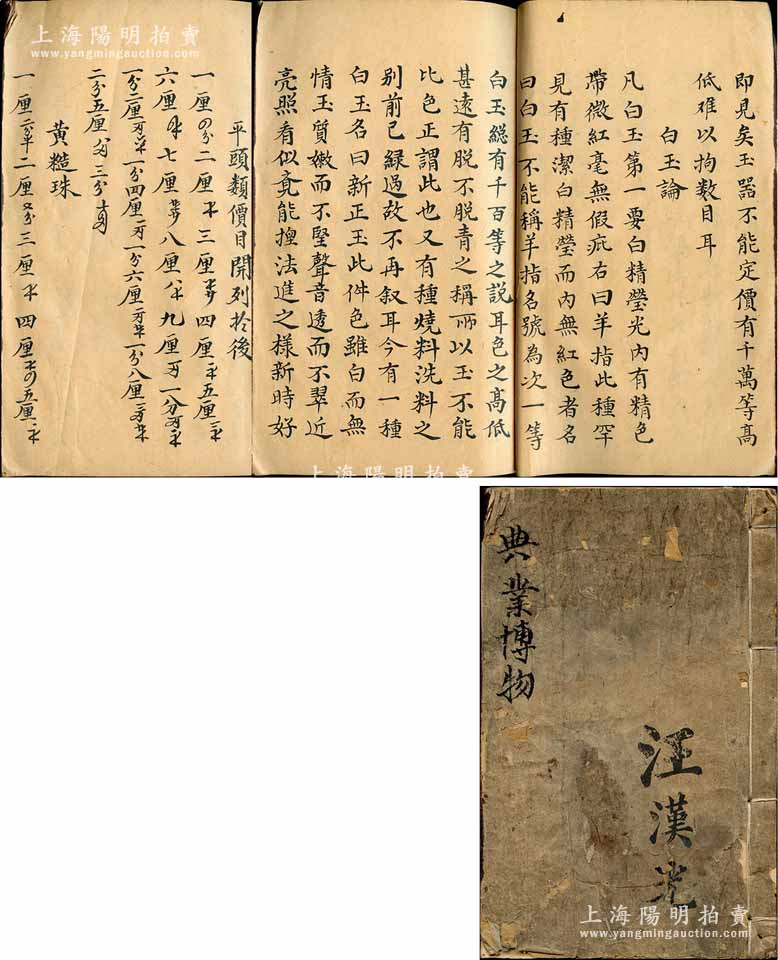 上海陽明拍賣
www.yangmingauction.com
即見矣玉器不能定價有千萬等高
低難以拘数目耳
白玉論
凡白玉第一要白精瑩光内有精色
帶微紅毫無假疵右曰羊指此種罕
見有種潔白精瑩而内無紅色者名
曰白玉不能稱羊指名號為次一等
白玉総有千百等之説耳色之高低
甚遠有脱不脱青之稱而以玉不能
比色正謂此也又有種燒料洗料之
别前已緑過故不再叙耳今有一種
白玉名曰新正玉此件色雖白而無
情玉質嫩而不堅聲音透而不翠近
亮照看似竟能搜法進之樣新時好
平頭類價目開列於後
一厘 二厘 三厘 四厘 五厘
六厘 七厘 八厘 九厘 一分
一分二厘 一分四厘 一分六厘 一分八厘
二分五厘 三分
黄糙珠
一厘 二厘 三厘 四厘 五厘
上海陽明拍賣
典業博物
汪漢光
上海陽明拍賣
www.yangmingauction.com